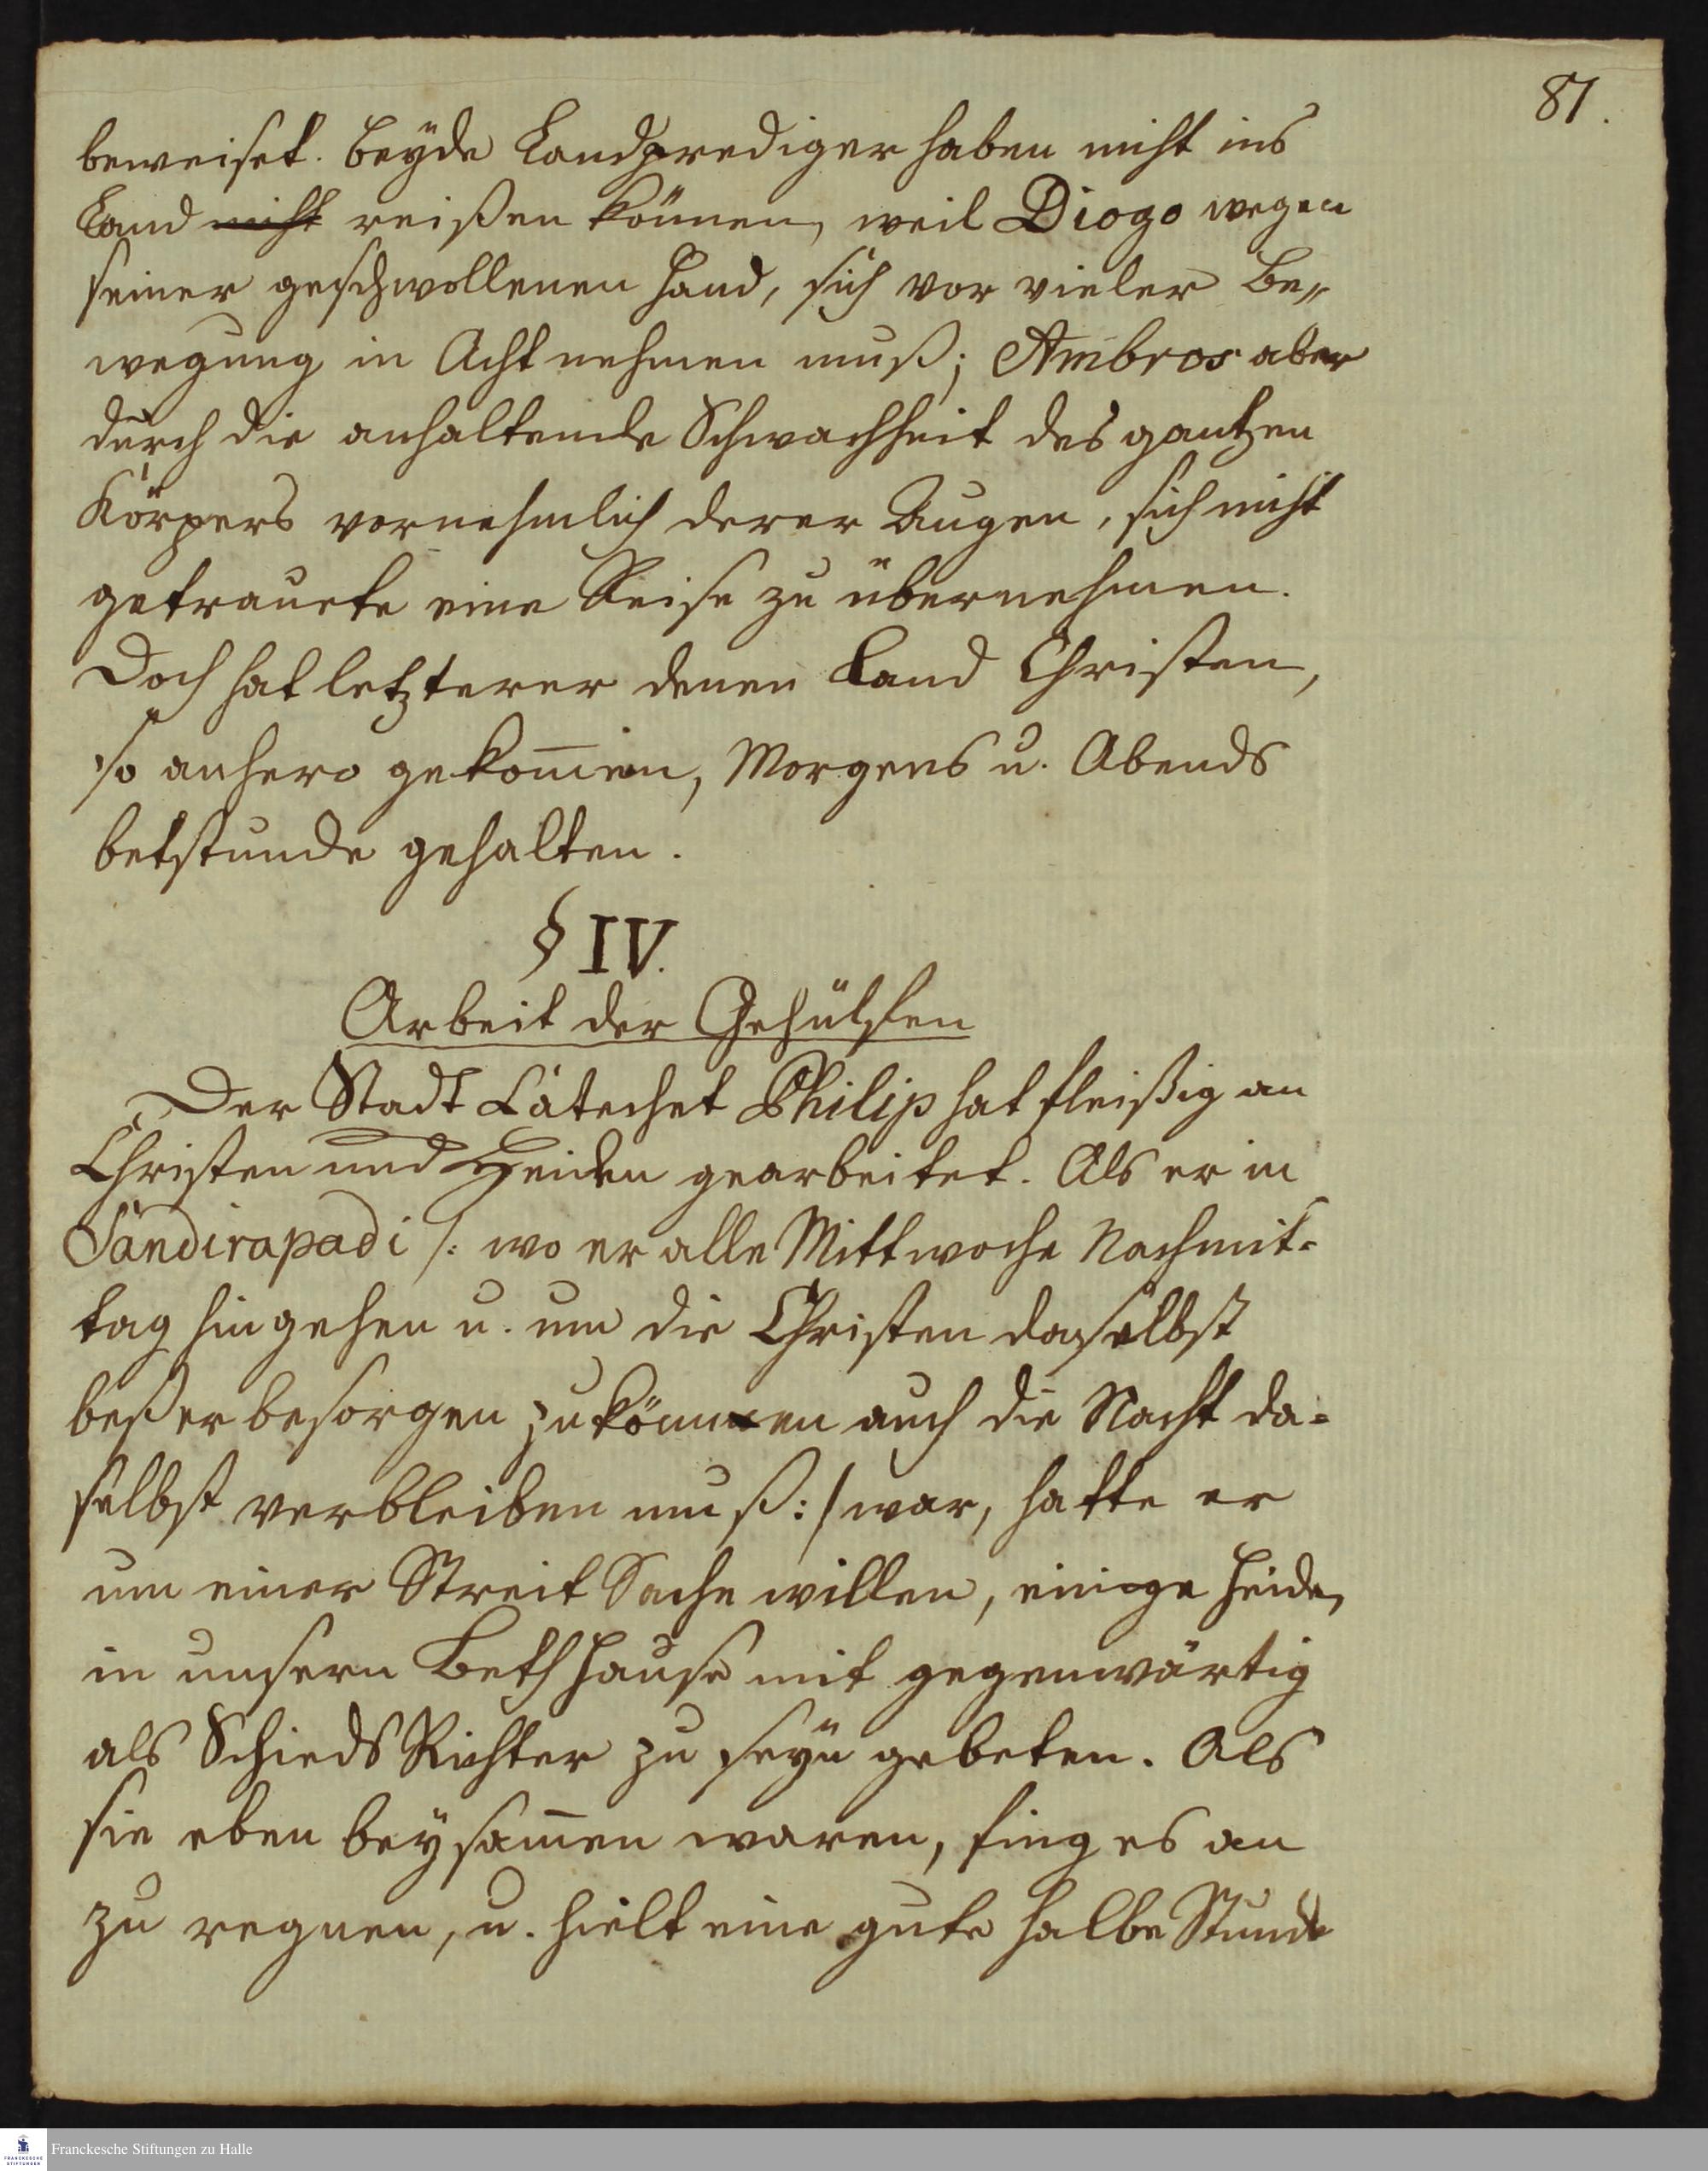 81.
beweiset. Beyde Landprediger haben nicht ins
Land nicht reißen können, weil Diogo wegen
seiner geschwollenen Hand, sich vor vieler Be„
wegung in Acht nehmen muß; Ambros aber
durch die anhaltende Schwachheit des gantzen
Körpers vornehmlich derer Augen, sich nicht
getrauete eine Reise zu übernehmen.
Doch hat letzterer denen Land Christen,
so anhero gekom̄en, Morgens u. Abends
betstunde gehalten.
§ IV.
Arbeit der Gehülfen
Der Stadt Catechet Philip hat fleißig an
Christen und Heiden gearbeitet. Als er in
Sandirapadi /: wo er alle Mittwoche Nachmit=
tag hingehen u. um die Christen daselbst
beßer besorgen zu können auch die Nacht da=
selbst verbleiben muß:/ war, hatte er
um einer Streit Sache willen, einige Heiden
in unsern Bethhause mit gegenwärtig
als Schieds Richter zu seyn gebeten. Als
sie eben beysam̄en waren, fing es an
zu regnen, u. hielt eine gute halbe Stunde
FRANCKESCHE STIFTUNGEN
Franckesche Stiftungen zu Halle